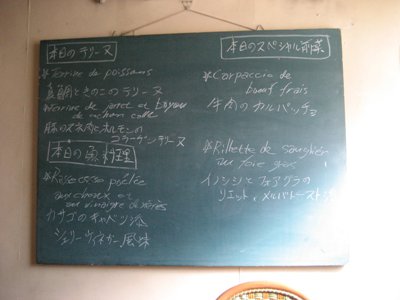 本日のテリーヌ
*Terrine de poissons
真鯛ときのこのテリーヌ
*Terrine de jaret et boyau
de cochon colle
豚のスネ肉とホルモンの
コラーゲンテリーヌ
本日の魚料理
*Rascasse poêlée
aux choux et
au vinaigre de xérès
カサゴのキャベツ添
シェリーヴィネガー風味
本日のスペシャル前菜
*Carpaccio de
bœuf frais
牛肉のカルパッチョ
*Rillette de sanglier
au foie gras
イノシシとフォアグラの
リエット、メルバトースト